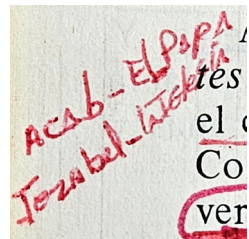 Acab - El Papa
Jezabel - la Iglesia
tes
el
Co
ver